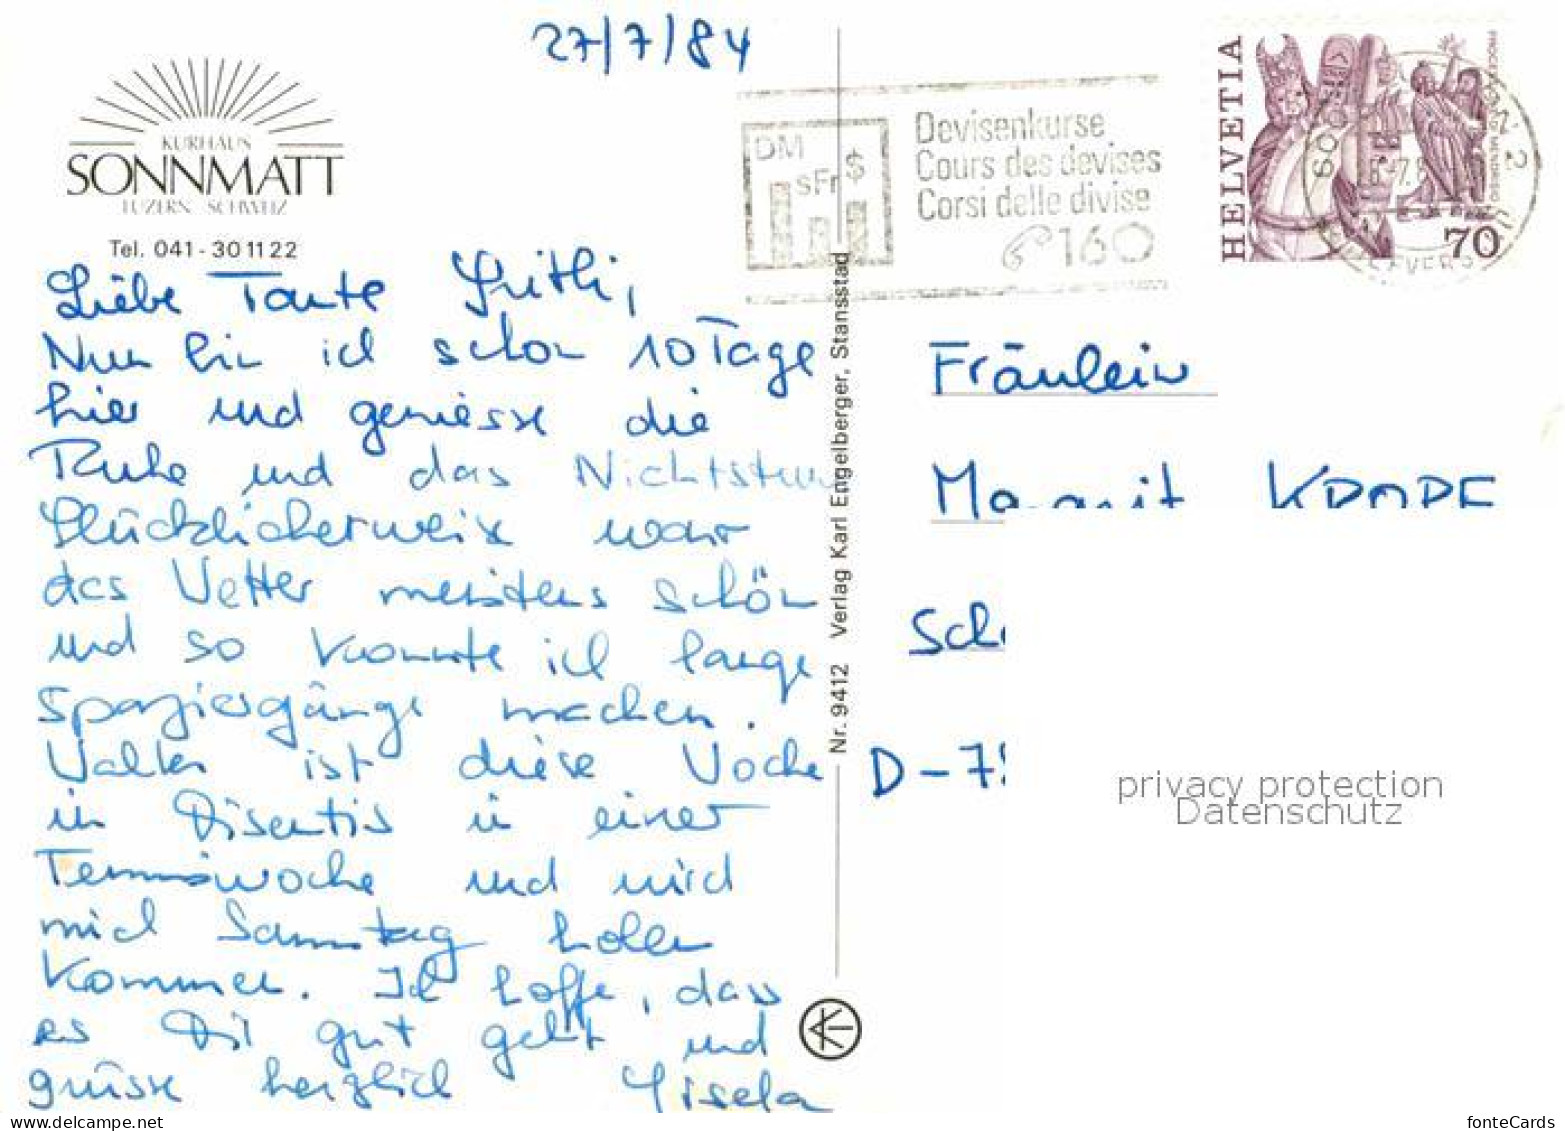 27/7/84
KURHAUS
SONNMATT
LUZERN SCHWEIZ
Tel. 041-30 11 22
Liebe Tante Gritli,
Nun bin ich schon 10 Tage
hier und geniesse die
Ruhe und das Nichtstun
Glücklicherweise war
das Wetter meistens schön
und so konnte ich lange
Spaziergänge machen.
Walter ist diese Woche
in Disentis in einer
Tenniswoche und wird
mich Samstag holen
kommen. Ich hoffe, dass
es Dir gut geht und
grüsse herzlich Gisela
Nr. 9412 Verlag Karl Engelberger, Stansstad
DM
sFr $
Devisenkurse
Cours des devises
Corsi delle divise
160
HELVETIA
70
Fräulein
Margrit
Sch
D-75
privacy protection
Datenschutz
https://www.ansichtskarten-center.de/
fonteCards